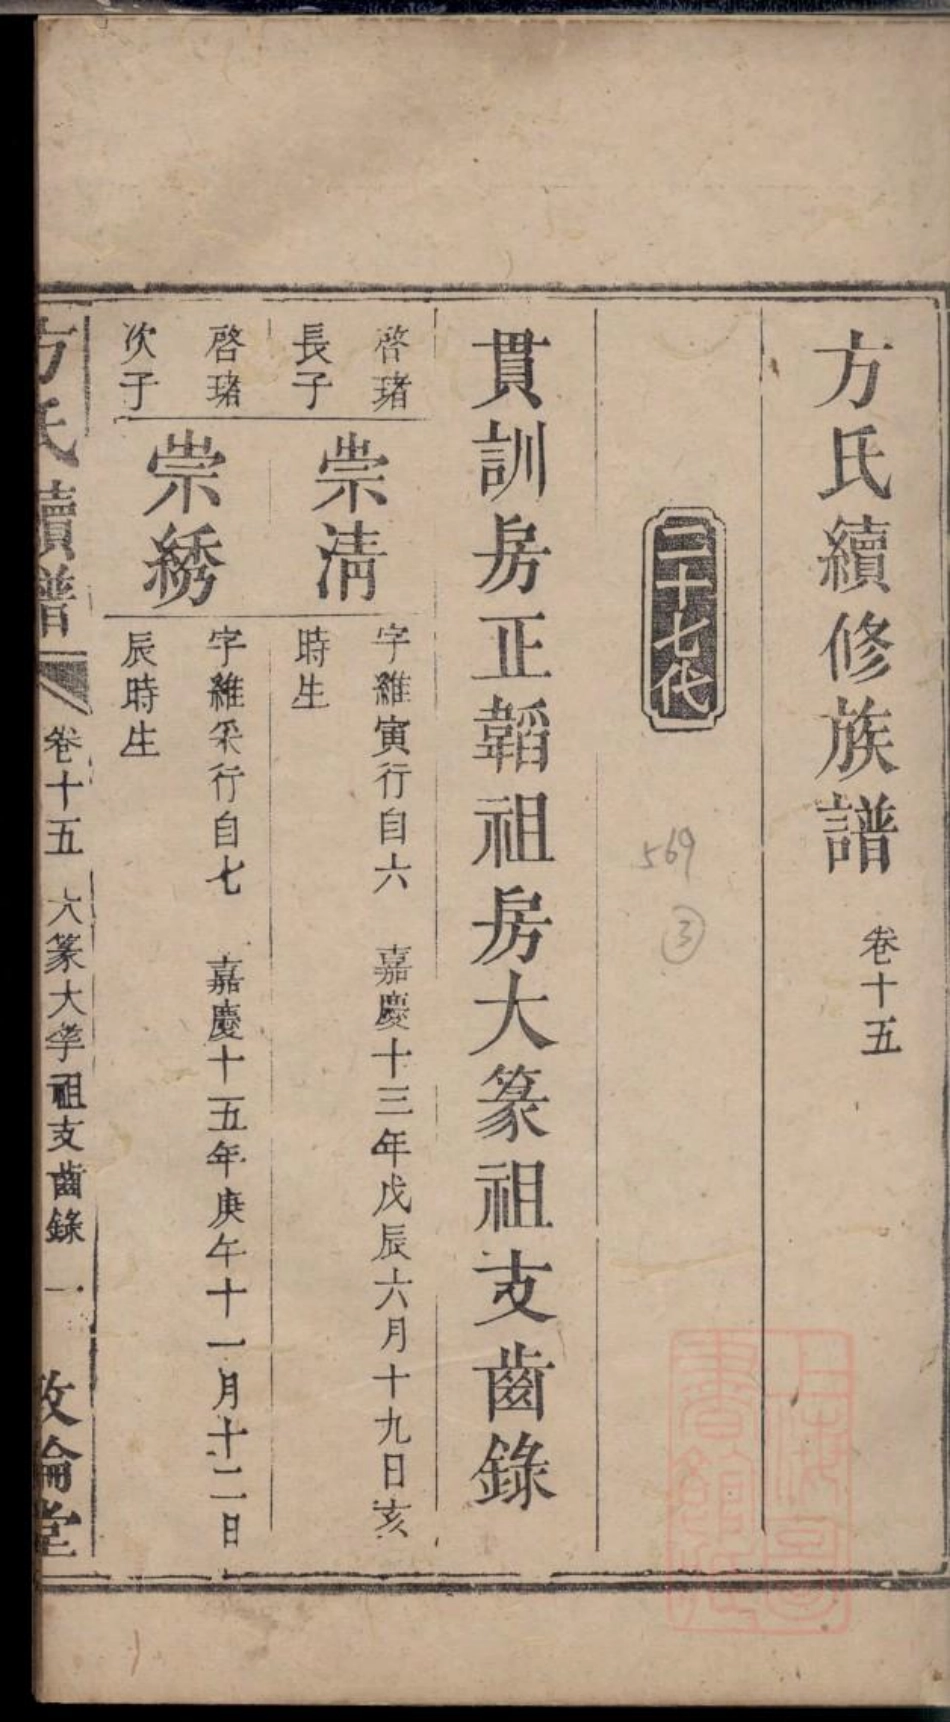 方氏續修族譜 卷十五
二十七代
569
3
貫訓房正韜祖房大篆祖支齒錄
啓瑃
長子
崇清
字維寅行自六 嘉慶十三年戊辰六月十九日亥
時生
啓瑃
次子
崇綉
字維采行自七 嘉慶十五年庚午十一月十二日
辰時生
方氏續譜 卷十五 大篆大學祖支齒錄 一 敦倫堂